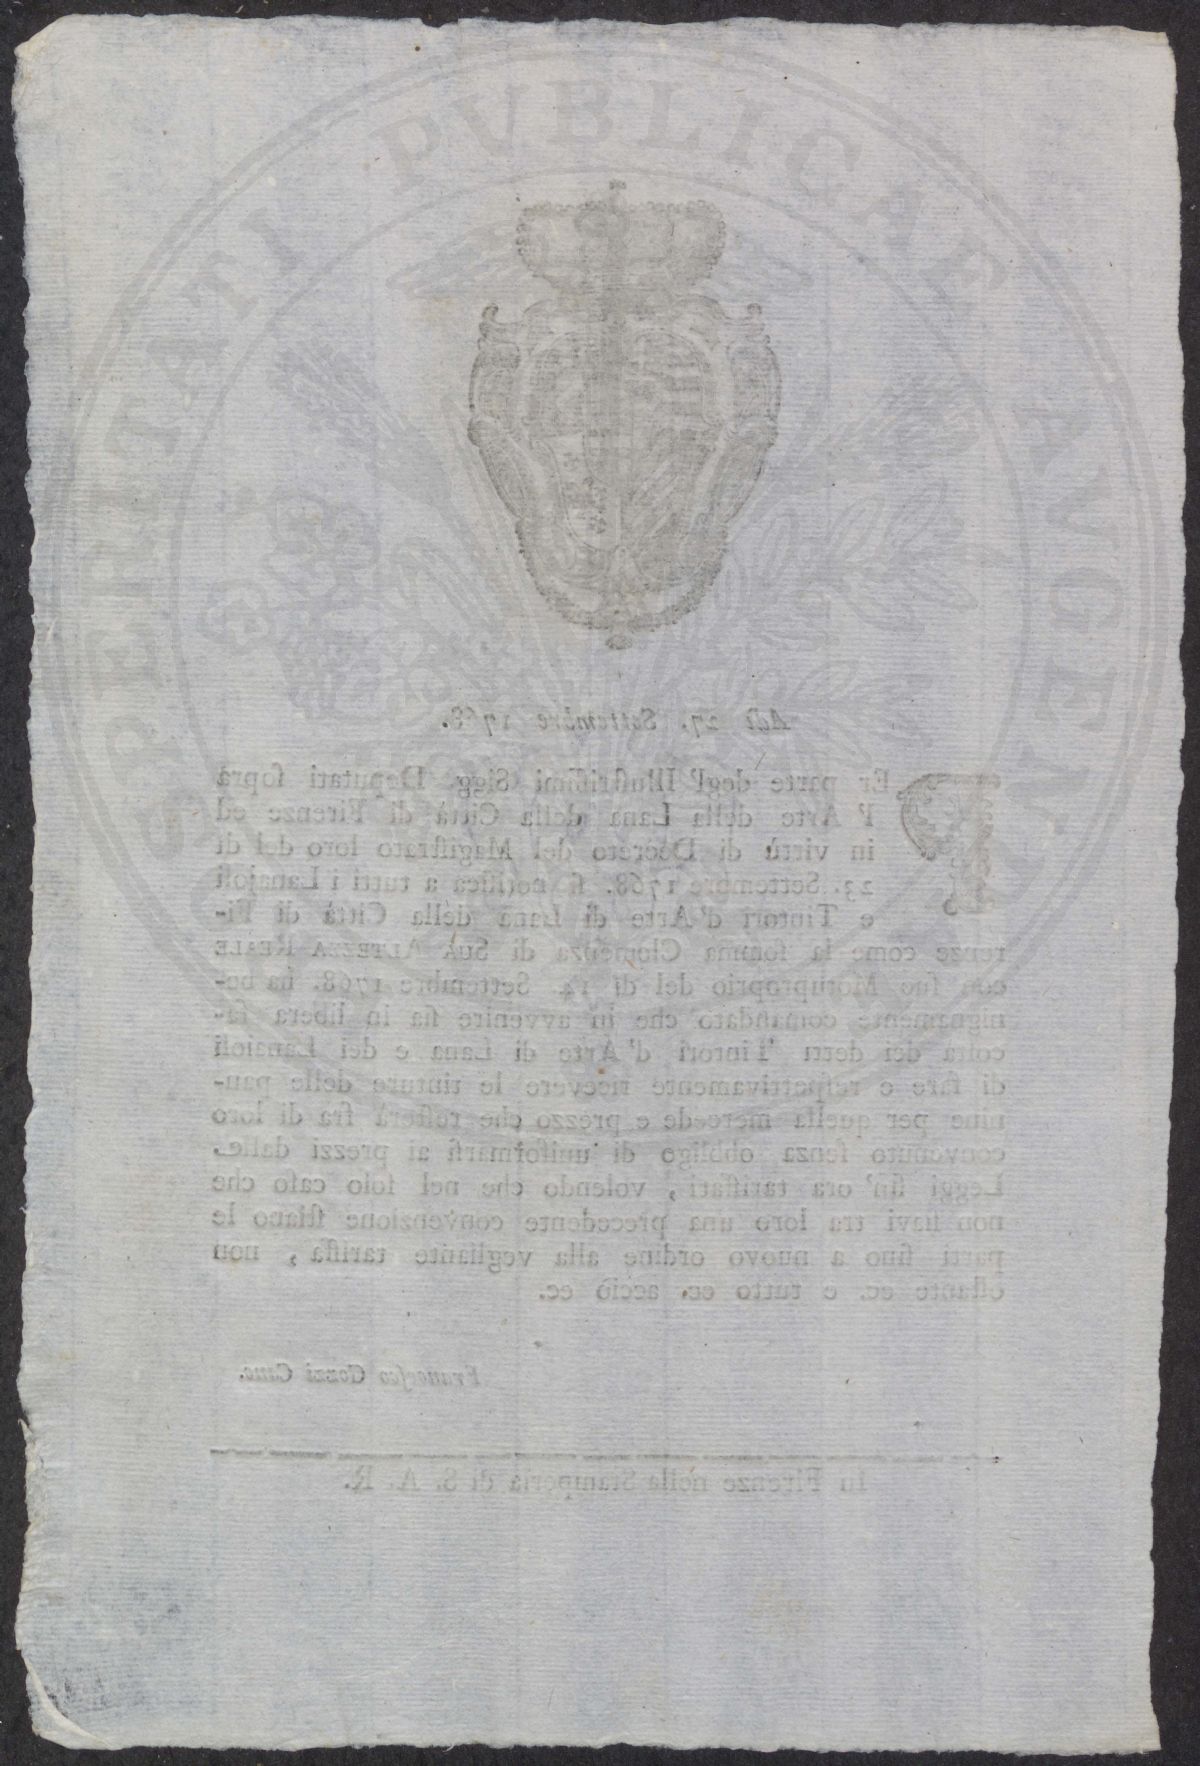 PROSPERITATI PVBLICAE AVGENDAE
Adì 27. Settembre 1768.
PEr parte degl' Illustrissimi Sigg. Deputati sopra
l' Arte della Lana della Città di Firenze ed
in virtù di Decreto del Magistrato loro del dì
23. Settembre 1768. si notifica a tutti i Lanajoli
e Tintori d'Arte di Lana della Città di Fi-
renze come la somma Clemenza di SUA ALTEZZA REALE
con suo Motuproprio del dì 14. Settembre 1768. ha be-
nignamente comandato che in avvenire sia in libera fa-
coltà dei detti Tintori d'Arte di Lana e dei Lanaioli
di fare e respettivamente ricevere le tinture delle pan-
nine per quella mercede e prezzo che resterà fra di loro
convenuto senza obbligo di uniformarsi ai prezzi dalle
Leggi fin' ora tariffati, volendo che nel solo caso che
non siavi tra loro una precedente convenzione stiano le
parti fino a nuovo ordine alla vegliante tariffa, non
ostante ec. e tutto ec. acciò ec.
Francesco Gozzi Canc.
In Firenze nella Stamperia di S. A. R.